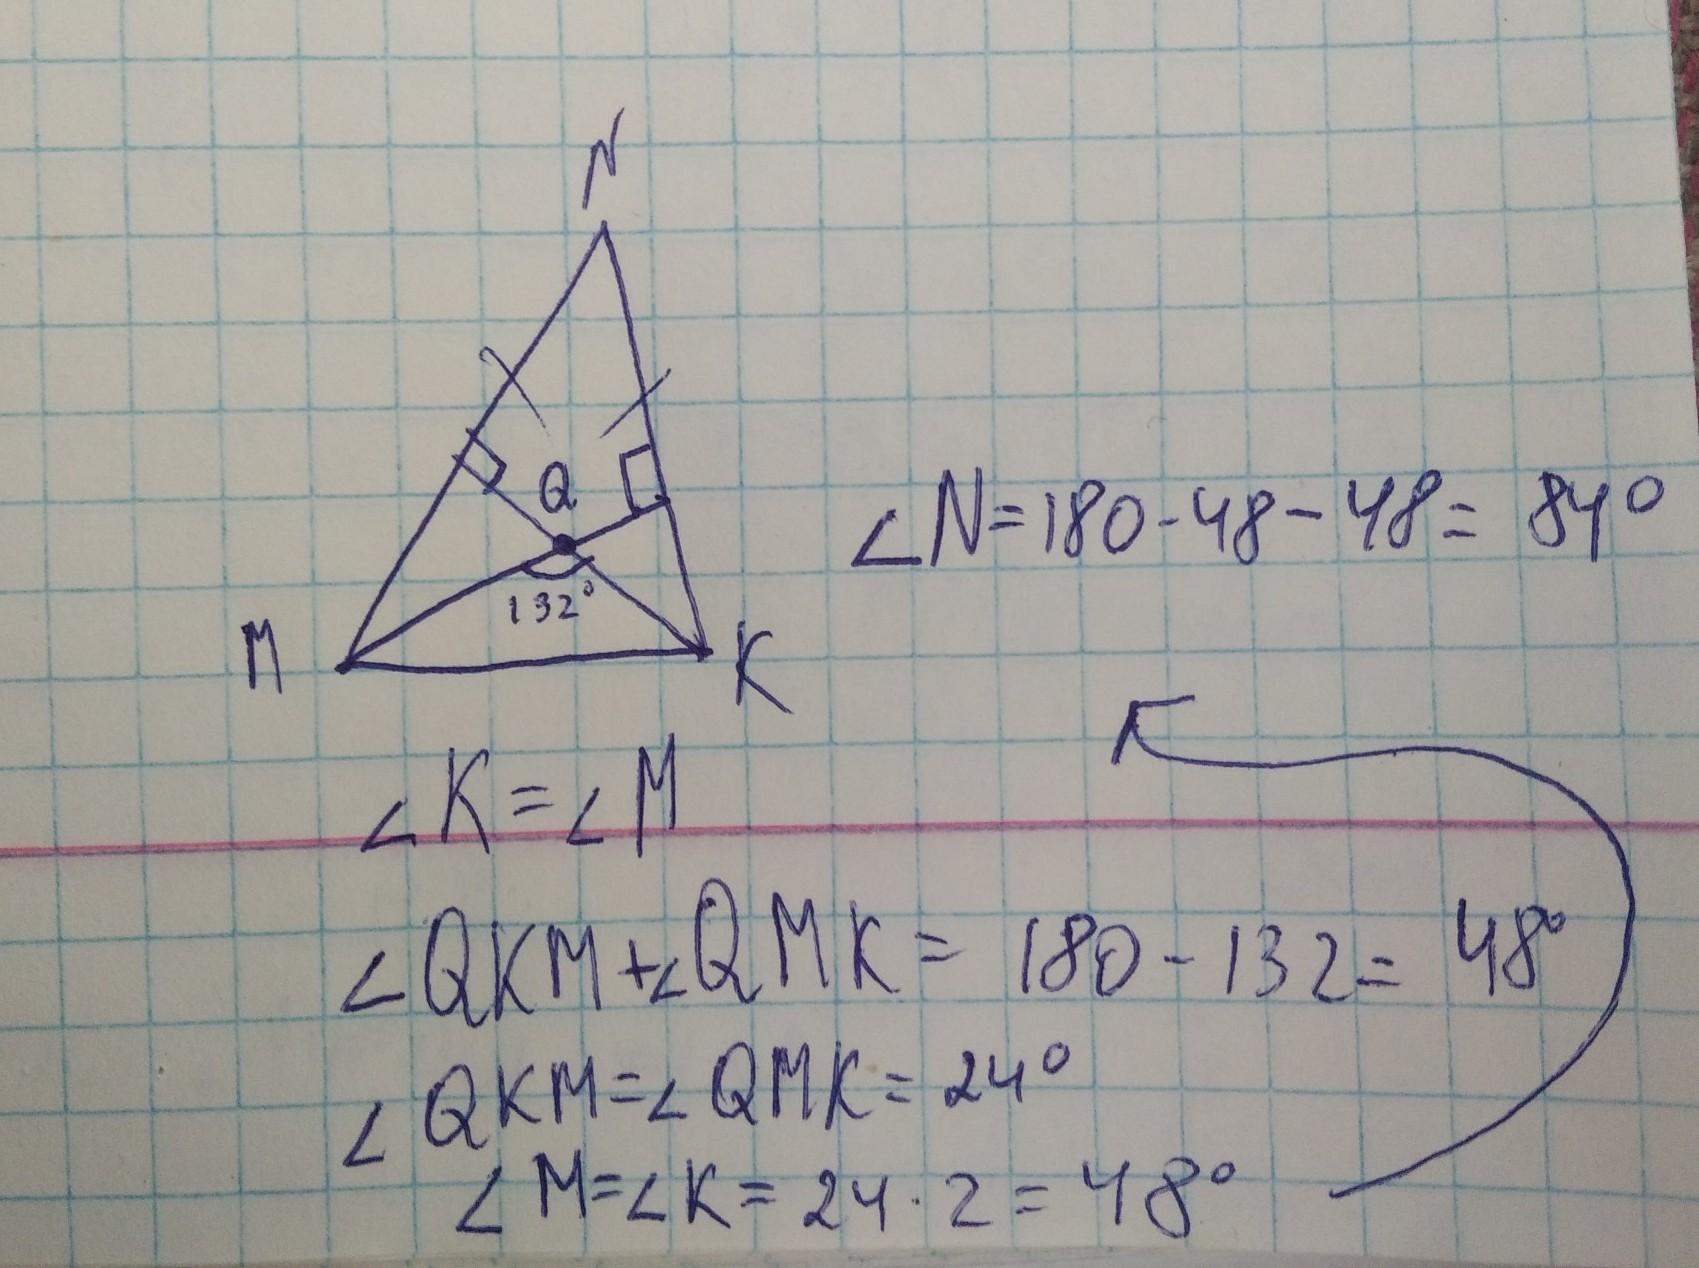 N
Q
132°
M
K
∠N=180-48-48=84°
∠K=∠M
∠QKM+∠QMK=180-132=48°
∠QKM=∠QMK=24°
∠M=∠K=24·2=48°